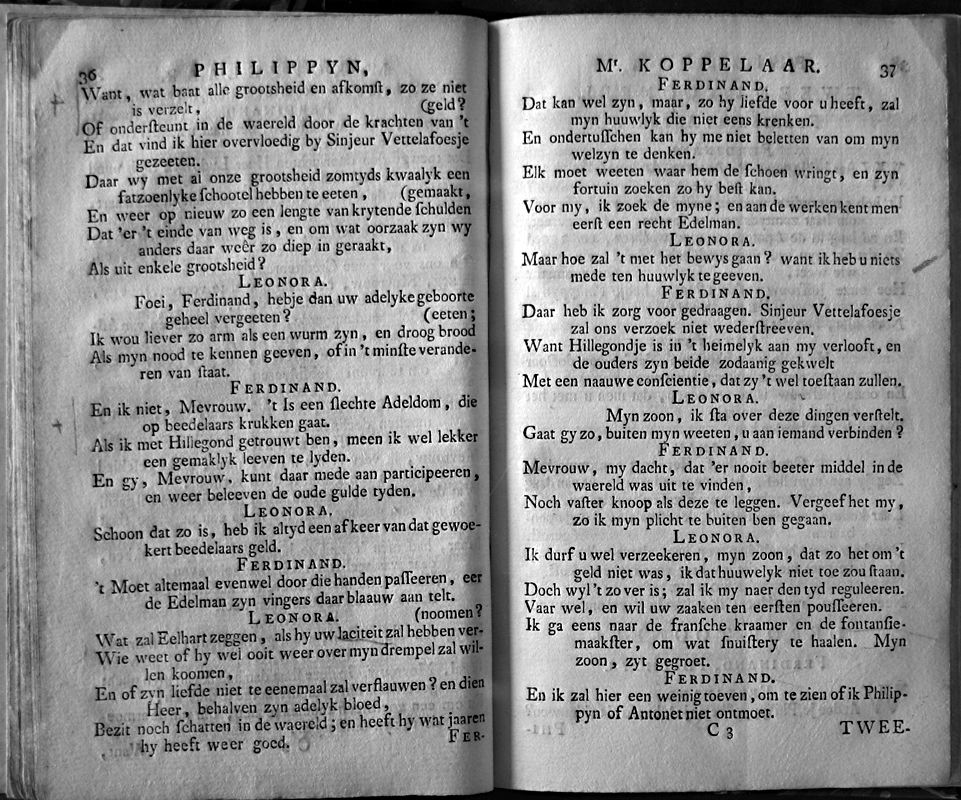 36
PHILIPPYN,
Want, wat baat alle grootsheid en afkomſt, zo ze niet
is verzelt, (geld?
Of onderſteunt in de waereld door de krachten van 't
En dat vind ik hier overvloedig by Sinjeur Vettelafoesje
gezeeten.
Daar wy met al onze grootsheid zomtyds kwaalyk een
fatzoenlyke ſchootel hebben te eeten, (gemaakt,
En weer op nieuw zo een lengte van krytende ſchulden
Dat 'er 't einde van weg is, en om wat oorzaak zyn wy
anders daar weêr zo diep in geraakt,
Als uit enkele grootsheid?
LEONORA.
Foei, Ferdinand, hebje dan uw adelyke geboorte
geheel vergeeten? (eeten;
Ik wou liever zo arm als een wurm zyn, en droog brood
Als myn nood te kennen geeven, of in 't minſte verande-
ren van ſtaat.
FERDINAND.
En ik niet, Mevrouw. 't Is een ſlechte Adeldom, die
op beedelaars krukken gaat.
Als ik met Hillegond getrouwt ben, meen ik wel lekker
een gemaklyk leeven te lyden.
En gy, Mevrouw, kunt daar mede aan participeeren,
en weer beleeven de oude gulde tyden.
LEONORA.
Schoon dat zo is, heb ik altyd een afkeer van dat gewoe-
kert beedelaars geld.
FERDINAND.
't Moet altemaal evenwel door die handen paſſeeren, eer
de Edelman zyn vingers daar blaauw aan telt.
LEONORA. (noomen?
Wat zal Eelhart zeggen, als hy uw laciteit zal hebben ver-
Wie weet of hy wel ooit weer over myn drempel zal wil-
len koomen,
En of zyn liefde niet te eenemaal zal verflauwen? en dien
Heer, behalven zyn adelyk bloed,
Bezit noch ſchatten in de waereld; en heeft hy wat jaaren
hy heeft weer goed.
FER-
Mr. KOPPELAAR. 37
FERDINAND.
Dat kan wel zyn, maar, zo hy liefde voor u heeft, zal
myn huuwlyk die niet eens krenken.
En ondertuſſchen kan hy me niet beletten van om myn
welzyn te denken.
Elk moet weeten waar hem de ſchoen wringt, en zyn
fortuin zoeken zo hy beſt kan.
Voor my, ik zoek de myne; en aan de werken kent men
eerſt een recht Edelman.
LEONORA.
Maar hoe zal 't met het bewys gaan? want ik heb u niets
mede ten huuwlyk te geeven.
FERDINAND.
Daar heb ik zorg voor gedraagen. Sinjeur Vettelafoesje
zal ons verzoek niet wederſtreeven.
Want Hillegondje is in 't heimelyk aan my verlooft, en
de ouders zyn beide zodaanig gekwelt
Met een naauwe conſcientie, dat zy 't wel toeſtaan zullen.
LEONORA.
Myn zoon, ik ſta over deze dingen verſtelt.
Gaat gy zo, buiten myn weeten, u aan iemand verbinden?
FERDINAND.
Mevrouw, my dacht, dat 'er nooit beeter middel in de
waereld was uit te vinden,
Noch vaſter knoop als deze te leggen. Vergeef het my,
zo ik myn plicht te buiten ben gegaan.
LEONORA.
Ik durf u wel verzeekeren, myn zoon, dat zo het om 't
geld niet was, ik dat huuwelyk niet toe zou ſtaan.
Doch wyl 't zo ver is; zal ik my naer den tyd reguleeren.
Vaar wel, en wil uw zaaken ten eerſten pouſſeeren.
Ik ga eens naar de franſche kraamer en de fontanſie-
maakſter, om wat ſnuiſtery te haalen. Myn
zoon, zyt gegroet.
FERDINAND.
En ik zal hier een weinig toeven, om te zien of ik Philip-
pyn of Antonet niet ontmoet.
C 3 TWEE-